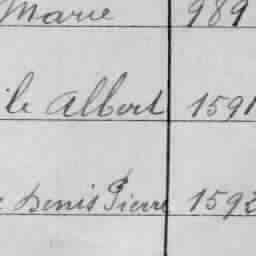 Marie 989
ile Albert 1591
e Denis Pierre 1592